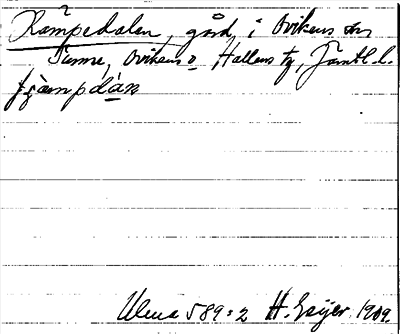 Kämpedalen, gård, i Ovikens sn
Sunne, Ovikens o Hallens tg, Jämtl. l.
Ulma 589:2 H. Geijer 1909.